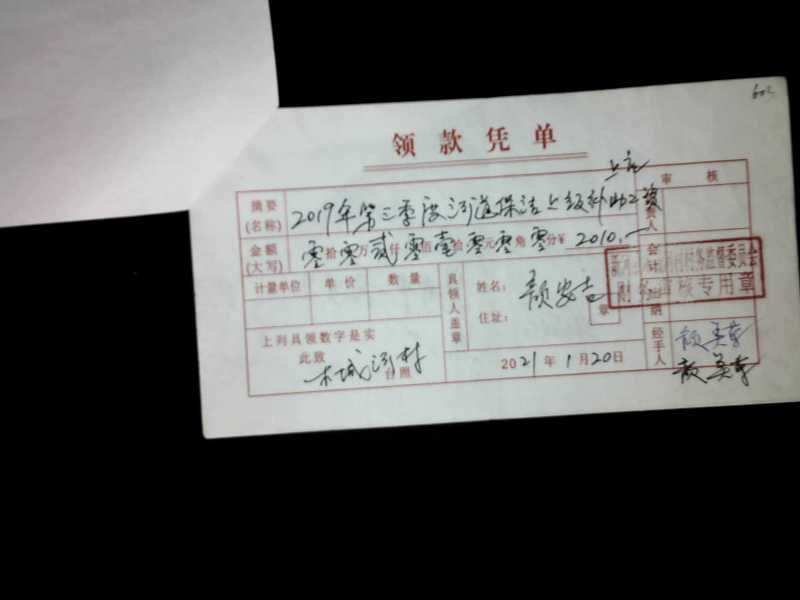 领款凭单
审核
摘要
(名称)
2019年第三季度河道保洁上级补助工资
责人
金额
(大写)
零拾零万贰仟零佰壹拾零元零角零分¥ 2010.—
会计
村务监督委员会
财务审核专用章
计量单位 单价 数量
具领人盖章
姓名:
住址:
章
纳
上列具领数字是实
此致
木城河村
台照
2021年1月20日
经手人